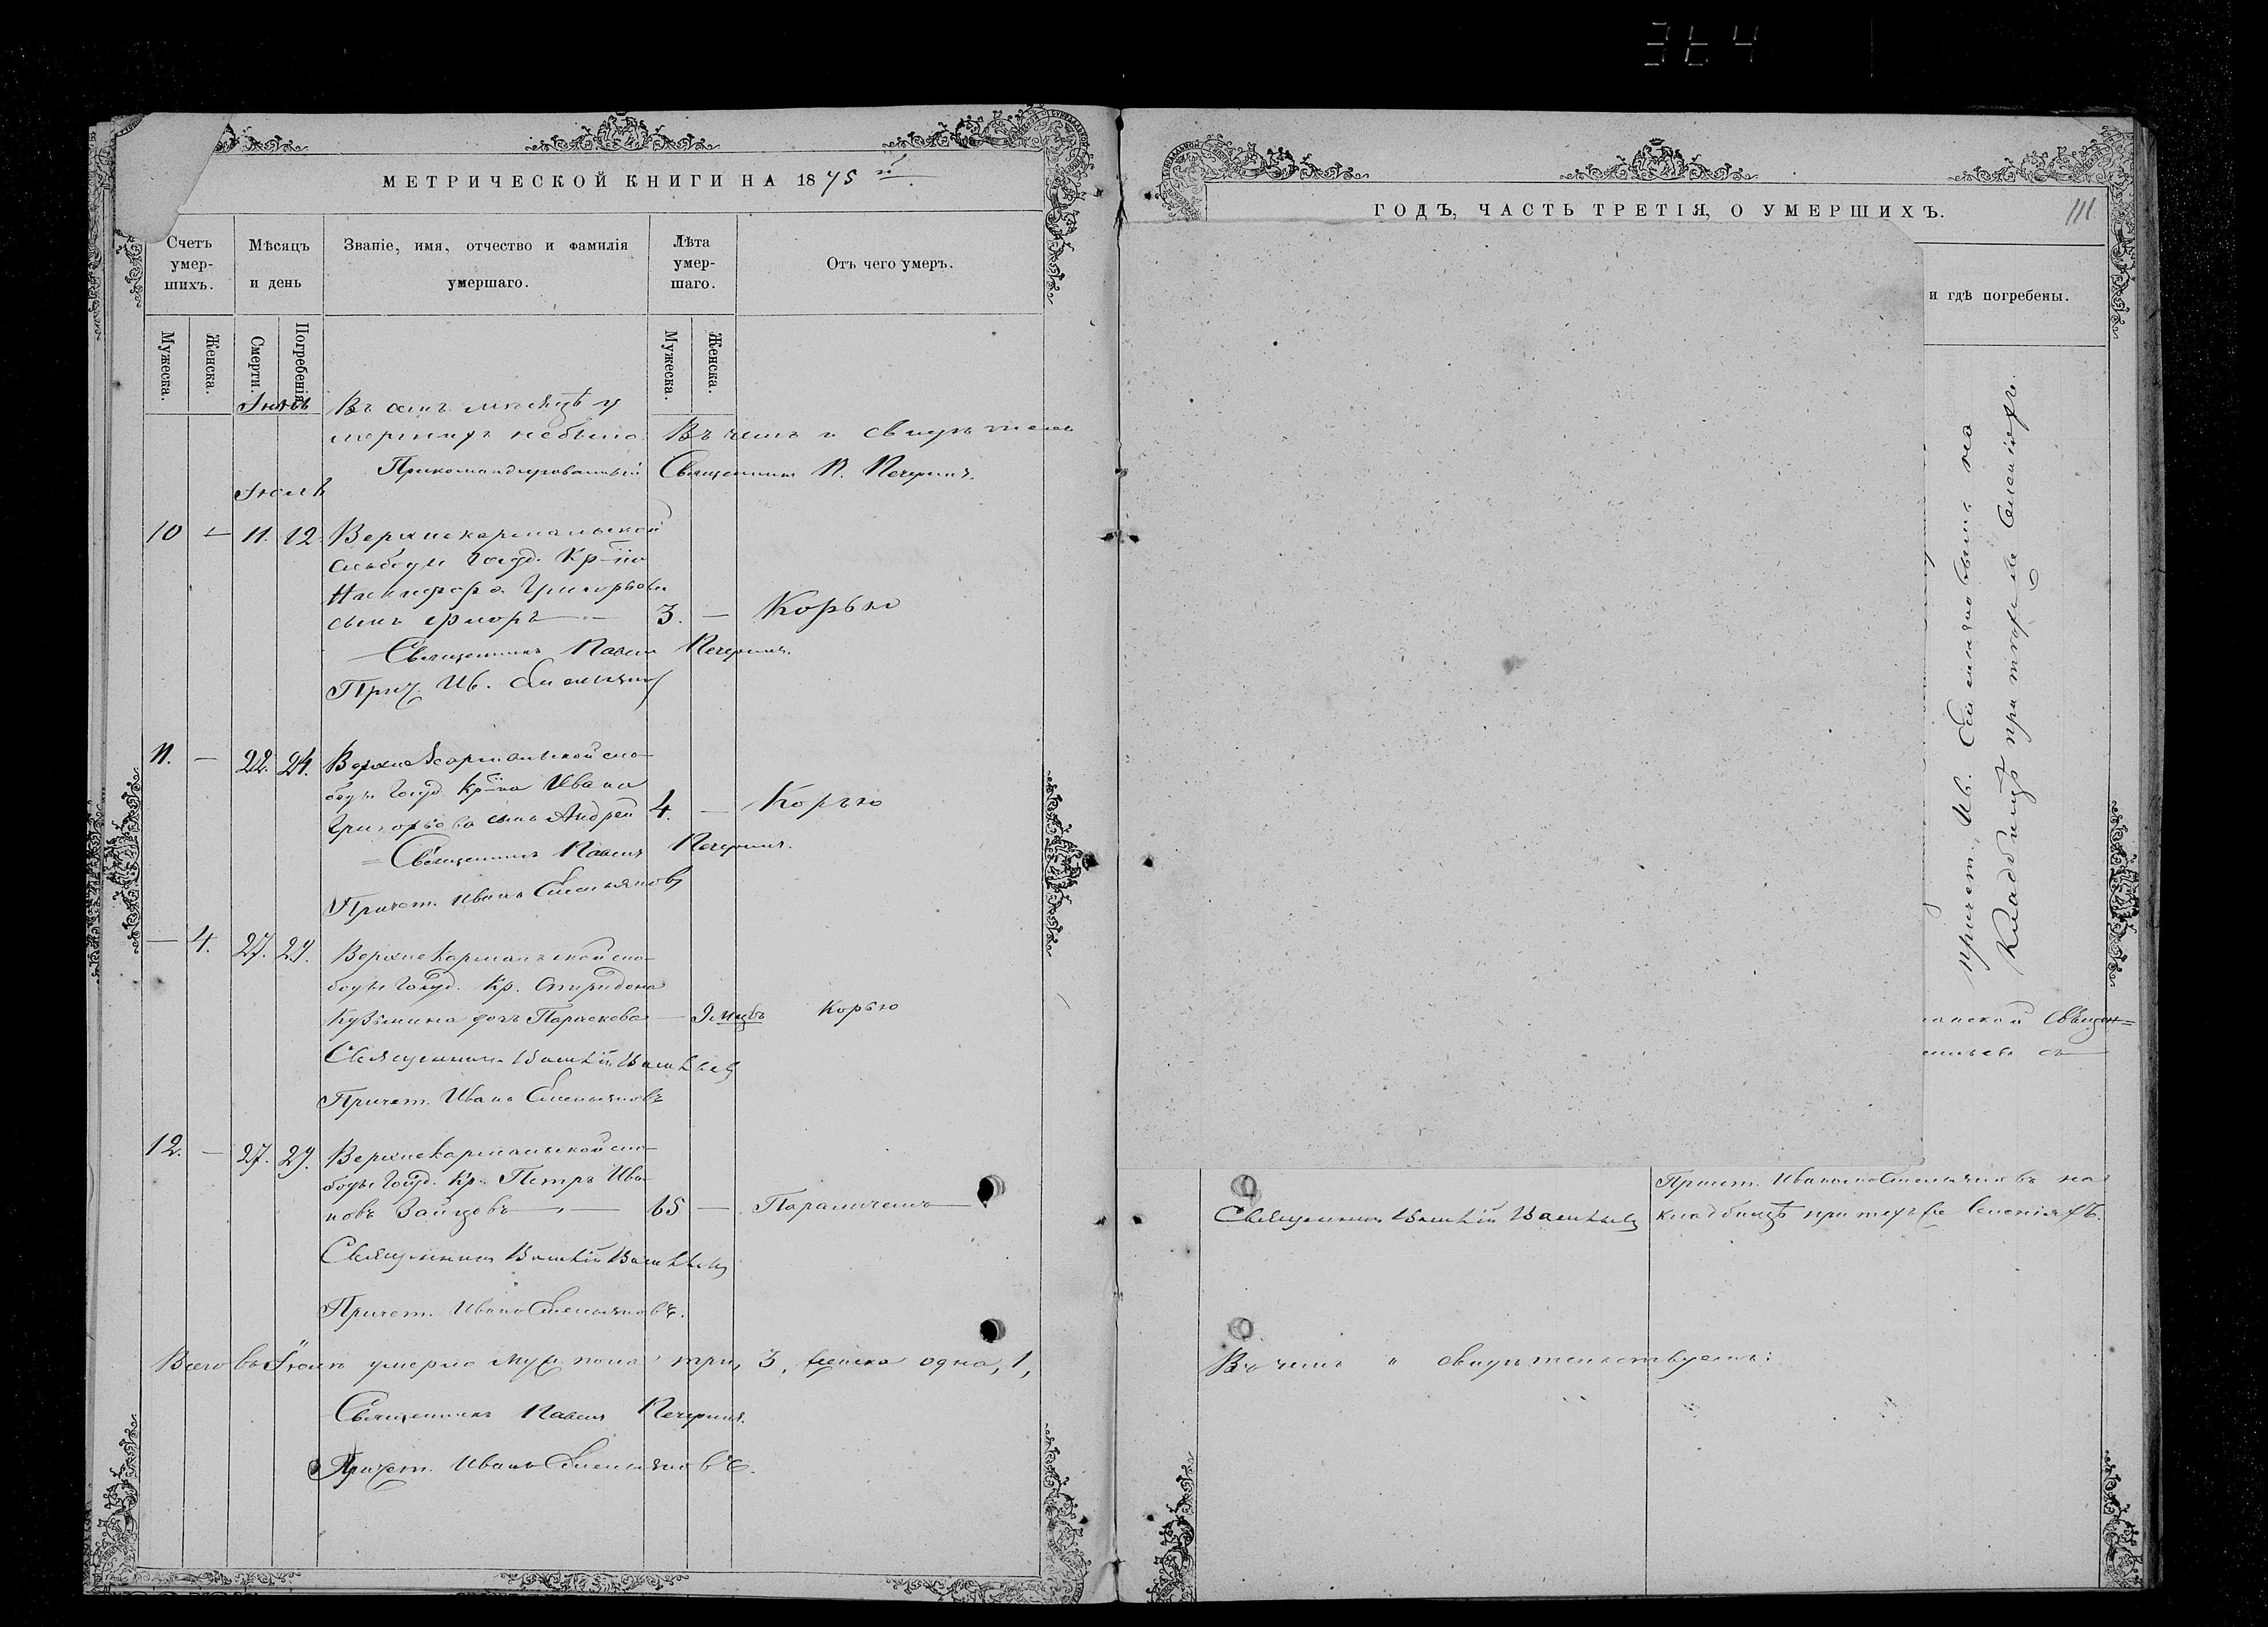 МЕТРИЧЕСКОЙ КНИГИ НА 1875 й.
Счетъ умер-шихъ.
Мѣсяцъ и день
Званіе, имя, отчество и фамилія умершаго.
Лѣта умер-шаго.
Отъ чего умеръ.
Мужеска.
Женска.
Смерти.
Погребенія.
Мужеска.
Женска.
Іюнь
Въ семъ мѣсяцѣ у
мершихъ небыло. Въ чемъ и
Прикомандированный Священникъ П. Печеринъ.
Іюль
10 — 11. 12. Верхнекармальской
слободы Госуд. Кр-на
Никифора Григорьева
сынъ 3. — Корью
Священникъ Павелъ Печеринъ.
Прич. Ив. Смельяновъ
11. — 22. 24. Верхнекармальской сло-
боды Госуд. Кр-на Ивана
Григорьева сынъ Андрей 4. — Корью
Священникъ Павелъ Печеринъ.
Причет. Иванъ Смельяновъ
— 4. 27. 29. Верхнекармальской сло-
боды Госуд. Кр. Спиридона
Кузьмина дочь Параскева — 9 мцвъ Корью
Священникъ Василій Васильевъ
Причет. Иванъ Смельяновъ
12. — 27. 29. Верхнекармальской сло-
боды Госуд. Кр. Петръ Ива-
новъ Зайцовъ — 65 — Параличемъ
Священникъ Василій Васильевъ
Причет. Иванъ Смельяновъ.
Всего въ Іюлѣ умерло муж. пола три, 3, женска одна, 1,
Священникъ Павелъ Печеринъ.
Причет. Иванъ Смельяновъ.
ГОДЪ, ЧАСТЬ ТРЕТІЯ, О УМЕРШИХЪ.
111
и гдѣ погребены.
причет. Ив. Смельяновымъ на
Кладбищѣ при томъ же селеніи
Священ-
Священникъ Василій Васильевъ
Причет. Иваномъ Смельяновъ на
кладбищѣ при томъ же селеніи.
Въ чемъ и свидѣтельствуемъ: